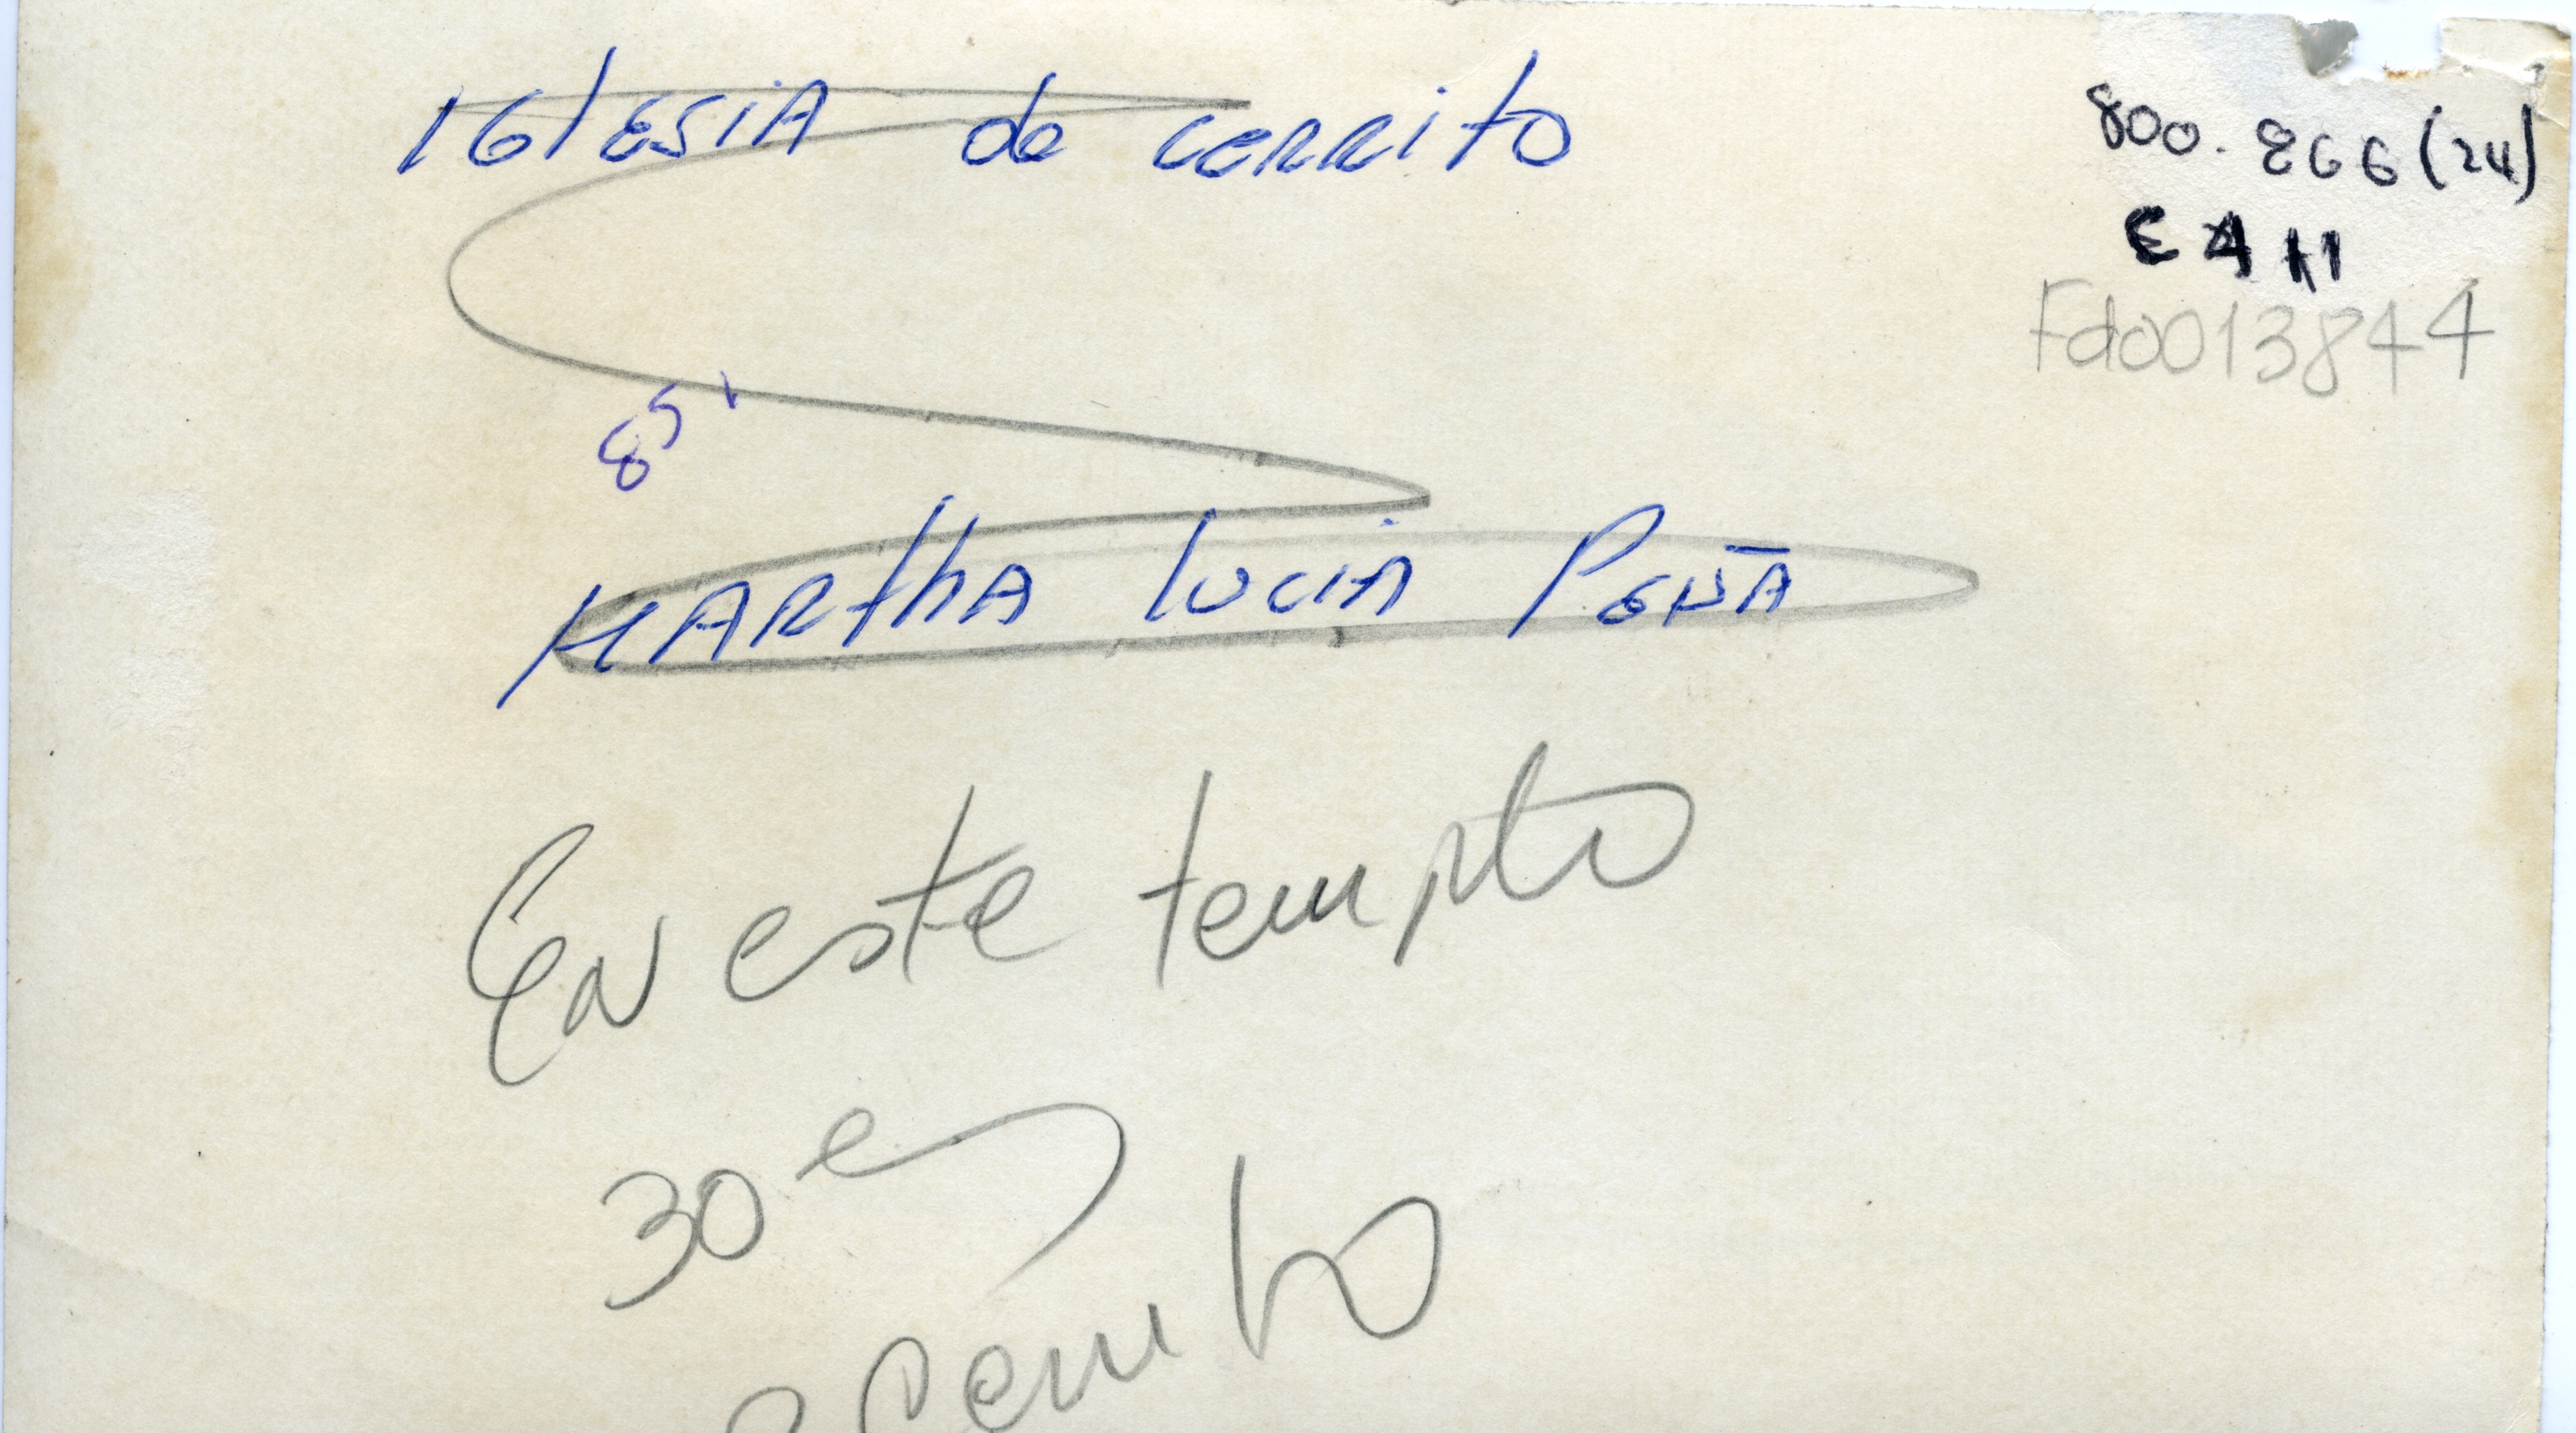 IGlESiA de cerrito
800.866(24)
E4H
Fdo0013844
85'
MARthA lucia PeñA
En este templo
30 e